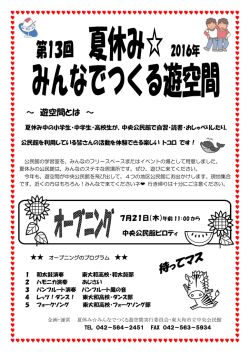 第13回 夏休み☆ 2016年
みんなでつくる遊空間
～ 遊空間とは ～
夏休み中の小学生・中学生・高校生が、中央公民館で自習・読書・おしゃべりしたり、
公民館を利用している皆さんの活動を体験できる楽しい トコロ です！
公民館の学習室を、みんなのフリースペースまたはイベントの場として用意しました。
夏休みの公民館は、みんなのステキな居場所です。ぜひ、遊びに来てください。
今年も、遊空間が中央公民館を飛び出して、4つの地区公民館にお出かけします。開催館合
です。近くの方はもちろん！みんなで来てくださいネ❤ 行き帰りは十分に注意してください。
オープニング
7月21日(木)午前11:00から
中央公民館ピロティ
★★ オープニングのプログラム ★★
1 和太鼓演奏 東大和高校・和太鼓部
2 ハモニカ演奏 あじさい
3 パンフルート演奏 パンフルート風の音
4 レッツ！ダンス！ 東大和高校・ダンス部
5 フォークソング 東大和高校・フォークソング部
待ってマス
企画・運営 夏休み☆みんなでつくる遊空間実行委員会・東大和市立中央公民館
TEL 042－564－2451 FAX 042－563－5934